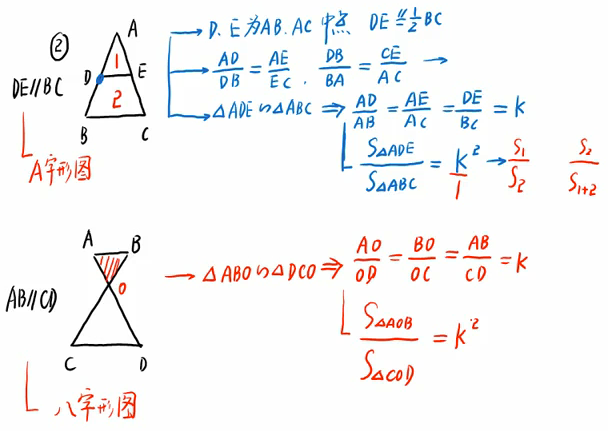 ②
DE∥BC
A字形图
A
D
E
B
C
1
2
D、E为AB、AC中点 DE∥=1/2 BC
AD/DB = AE/EC , DB/BA = CE/AC →
△ADE∽△ABC ⇒ AD/AB = AE/AC = DE/BC = K
S△ADE/S△ABC = K²/1 → S1/S2 S2/S1+2
AB∥CD
八字形图
A
B
O
C
D
→ △ABO∽△DCO ⇒ AO/OD = BO/OC = AB/CD = K
S△AOB/S△COD = K²